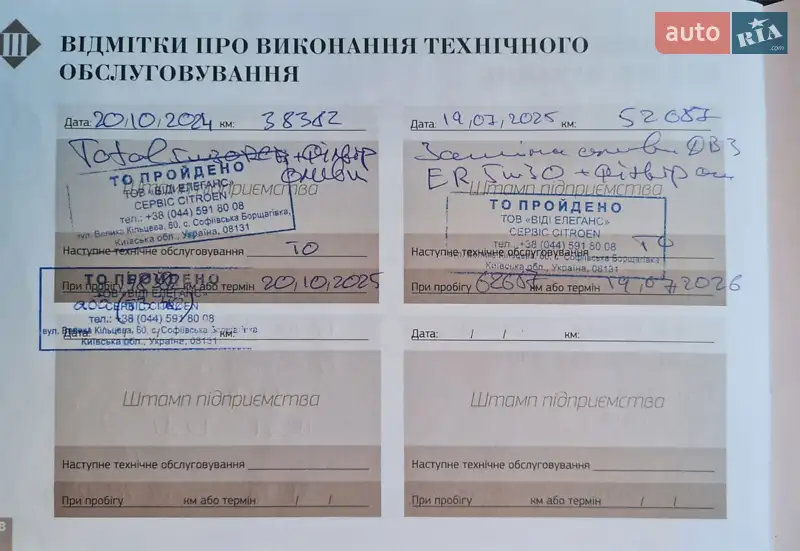 III
ВІДМІТКИ ПРО ВИКОНАННЯ ТЕХНІЧНОГО
ОБСЛУГОВУВАННЯ
auto RIA .com
Дата: 20,10,2024 км: 38382
Total + фільтр
оливи
Штамп підприємства
ТО ПРОЙДЕНО
ТОВ «ВІДІ ЕЛЕГАНС»
СЕРВІС CITROEN
тел.: +38 (044) 591 80 08
вул. Велика Кільцева, 60, с. Софіївська Борщагівка,
Київська обл., Україна, 08131
Наступне технічне обслуговування ТО
При пробігу км або термін 20,10,2025
ТО ПРОЙДЕНО
ТОВ «ВІДІ ЕЛЕГАНС»
СЕРВІС CITROEN
тел.: +38 (044) 591 80 08
вул. Велика Кільцева, 60, с. Софіївська Борщагівка,
Київська обл., Україна, 08131
Дата: 19,07,2025 км: 52687
Заміна оливи ДВЗ
+ фільтр
Штамп підприємства
ТО ПРОЙДЕНО
ТОВ «ВІДІ ЕЛЕГАНС»
СЕРВІС CITROEN
тел.: +38 (044) 591 80 08
вул. Велика Кільцева, 60, с. Софіївська Борщагівка,
Київська обл., Україна, 08131
Наступне технічне обслуговування ТО
При пробігу 62687 км або термін 19,07,2026
Дата: / / км:
Штамп підприємства
Наступне технічне обслуговування
При пробігу км або термін / /
Дата: / / км:
Штамп підприємства
Наступне технічне обслуговування
При пробігу км або термін / /
8